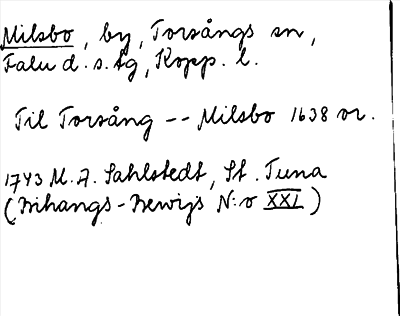 Milsbo, by, Torsångs sn,
Falu d. s. tg, Kopp. l.
Til Torsång -- Milsbo 1638 or.
1743 M. A. Sahlstedt, St. Tuna
(Bihangs-Bewijs N:o XXI)